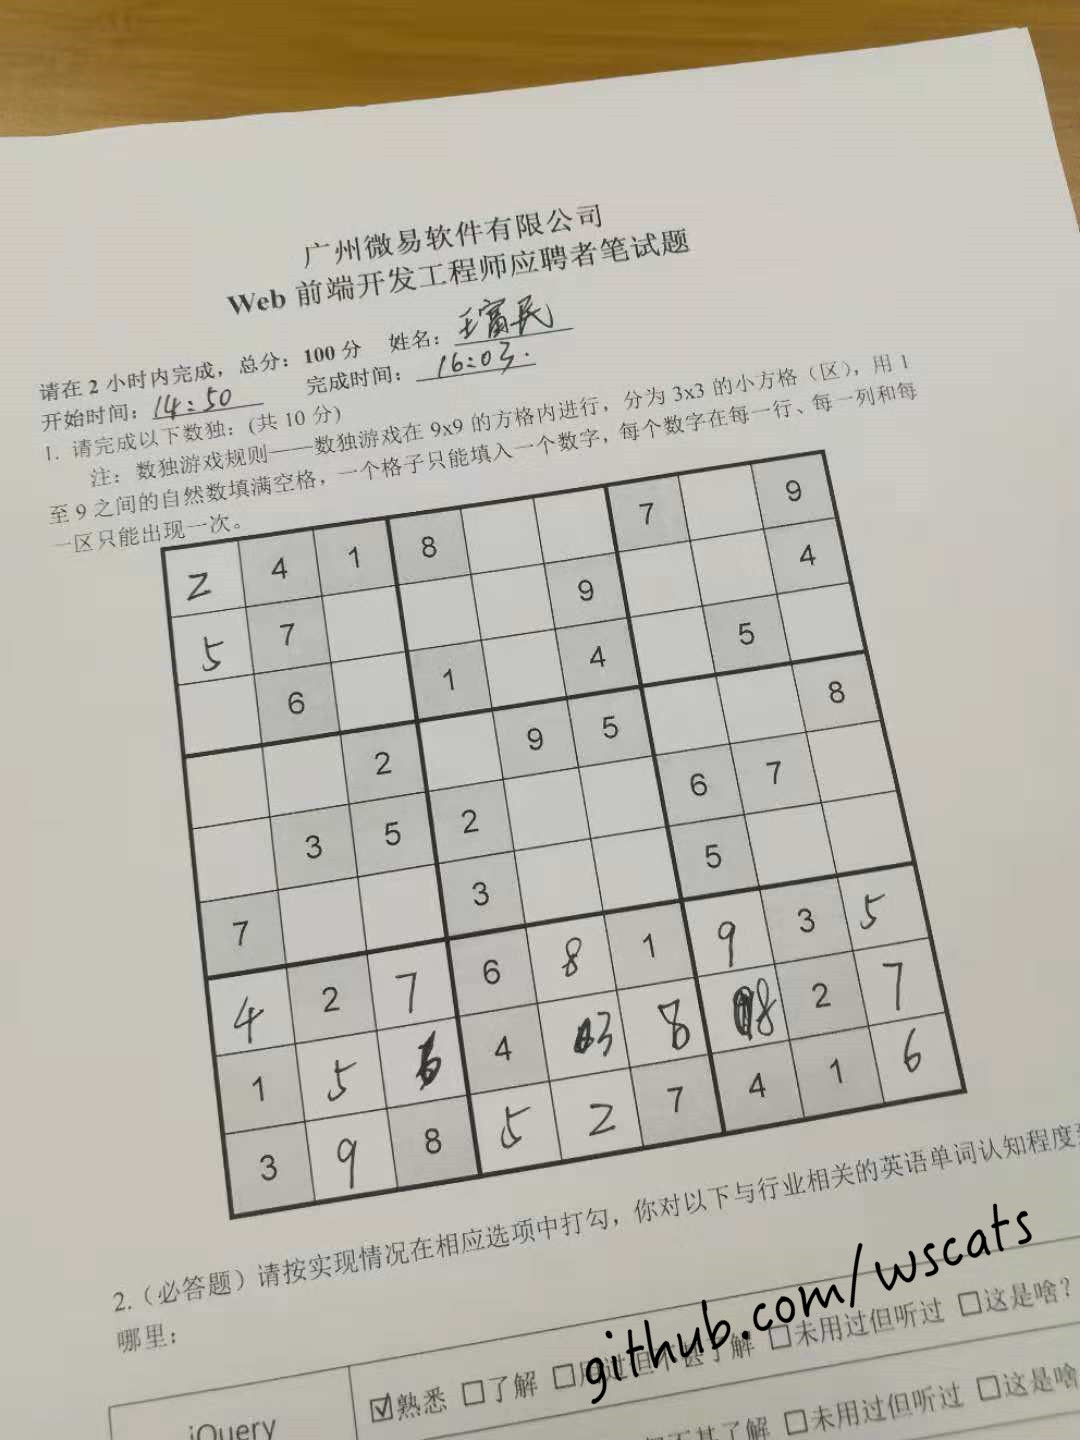 广州微易软件有限公司
Web 前端开发工程师应聘者笔试题
请在 2 小时内完成，总分：100 分 姓名：王富民
开始时间：14:50 完成时间：16:03.
1. 请完成以下数独：(共 10 分)
注：数独游戏规则——数独游戏在 9x9 的方格内进行，分为 3x3 的小方格（区），用 1
至 9 之间的自然数填满空格，一个格子只能填入一个数字，每个数字在每一行、每一列和每
一区只能出现一次。
2 4 1 8 7 9
5 7 9 4
6 1 4 5
2 9 5 8
3 5 2 6 7
7 3 5
4 2 7 6 8 1 9 3 5
1 5 6 4 3 8 8 2 7
3 9 8 5 2 7 4 1 6
2.（必答题）请按实现情况在相应选项中打勾，你对以下与行业相关的英语单词认知程度
哪里：
jQuery ☑熟悉 □了解 □用过但不甚了解 □未用过但听过 □这是啥？
不甚了解 □未用过但听过 □这是啥
github.com/wscats